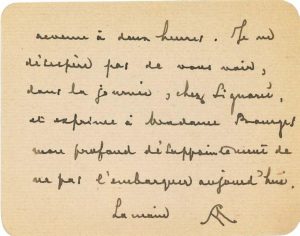 revenue à deux heures. Je ne
désespère pas de vous voir,
dans la journée, chez Signoret,
et exprimez à Madame Bourges
mon profond désappointement de
ne pas l'embarquer aujourd'hui.
La main